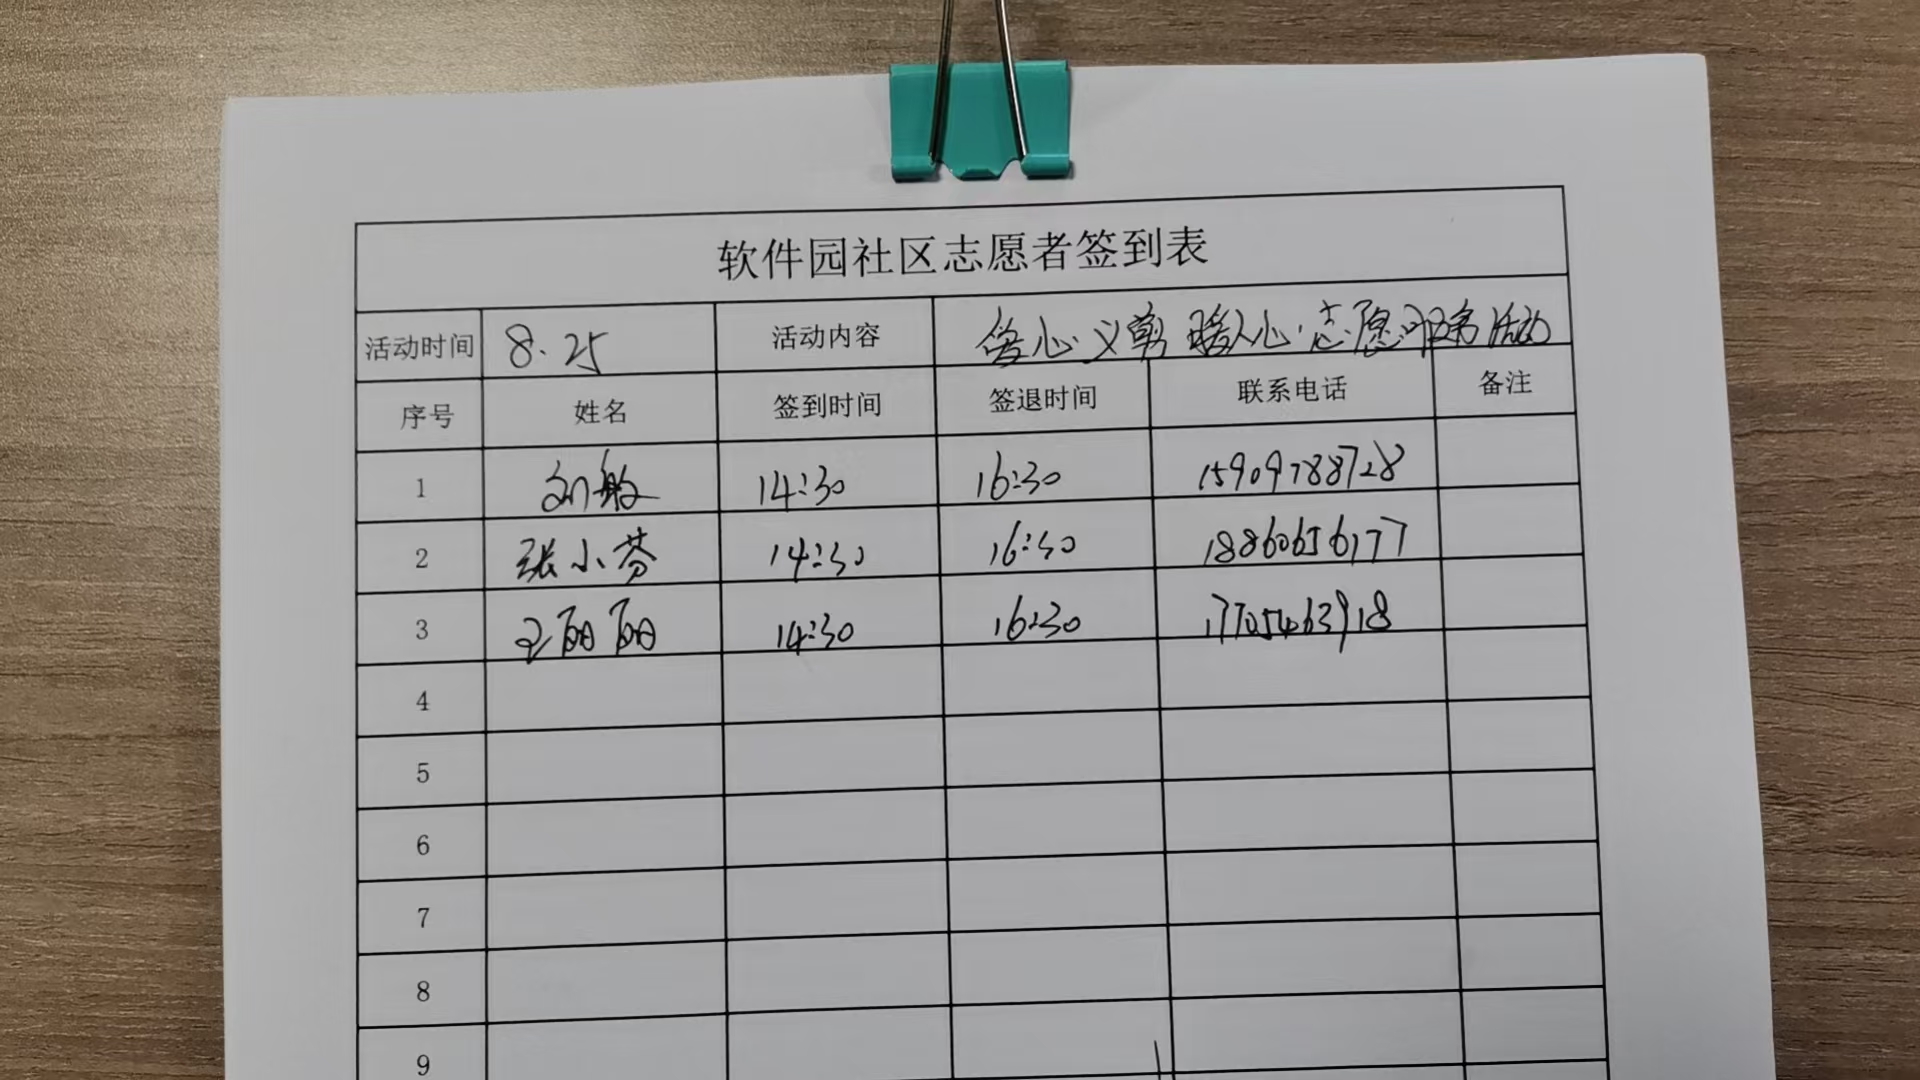 软件园社区志愿者签到表
活动时间 8.25 活动内容 爱心义剪 暖人心·志愿服务活动
序号 姓名 签到时间 签退时间 联系电话 备注
1 刘敏 14:30 16:30 15909788728
2 张小芬 14:30 16:30 18860656177
3 王丽丽 14:30 16:30 17705463918
4
5
6
7
8
9